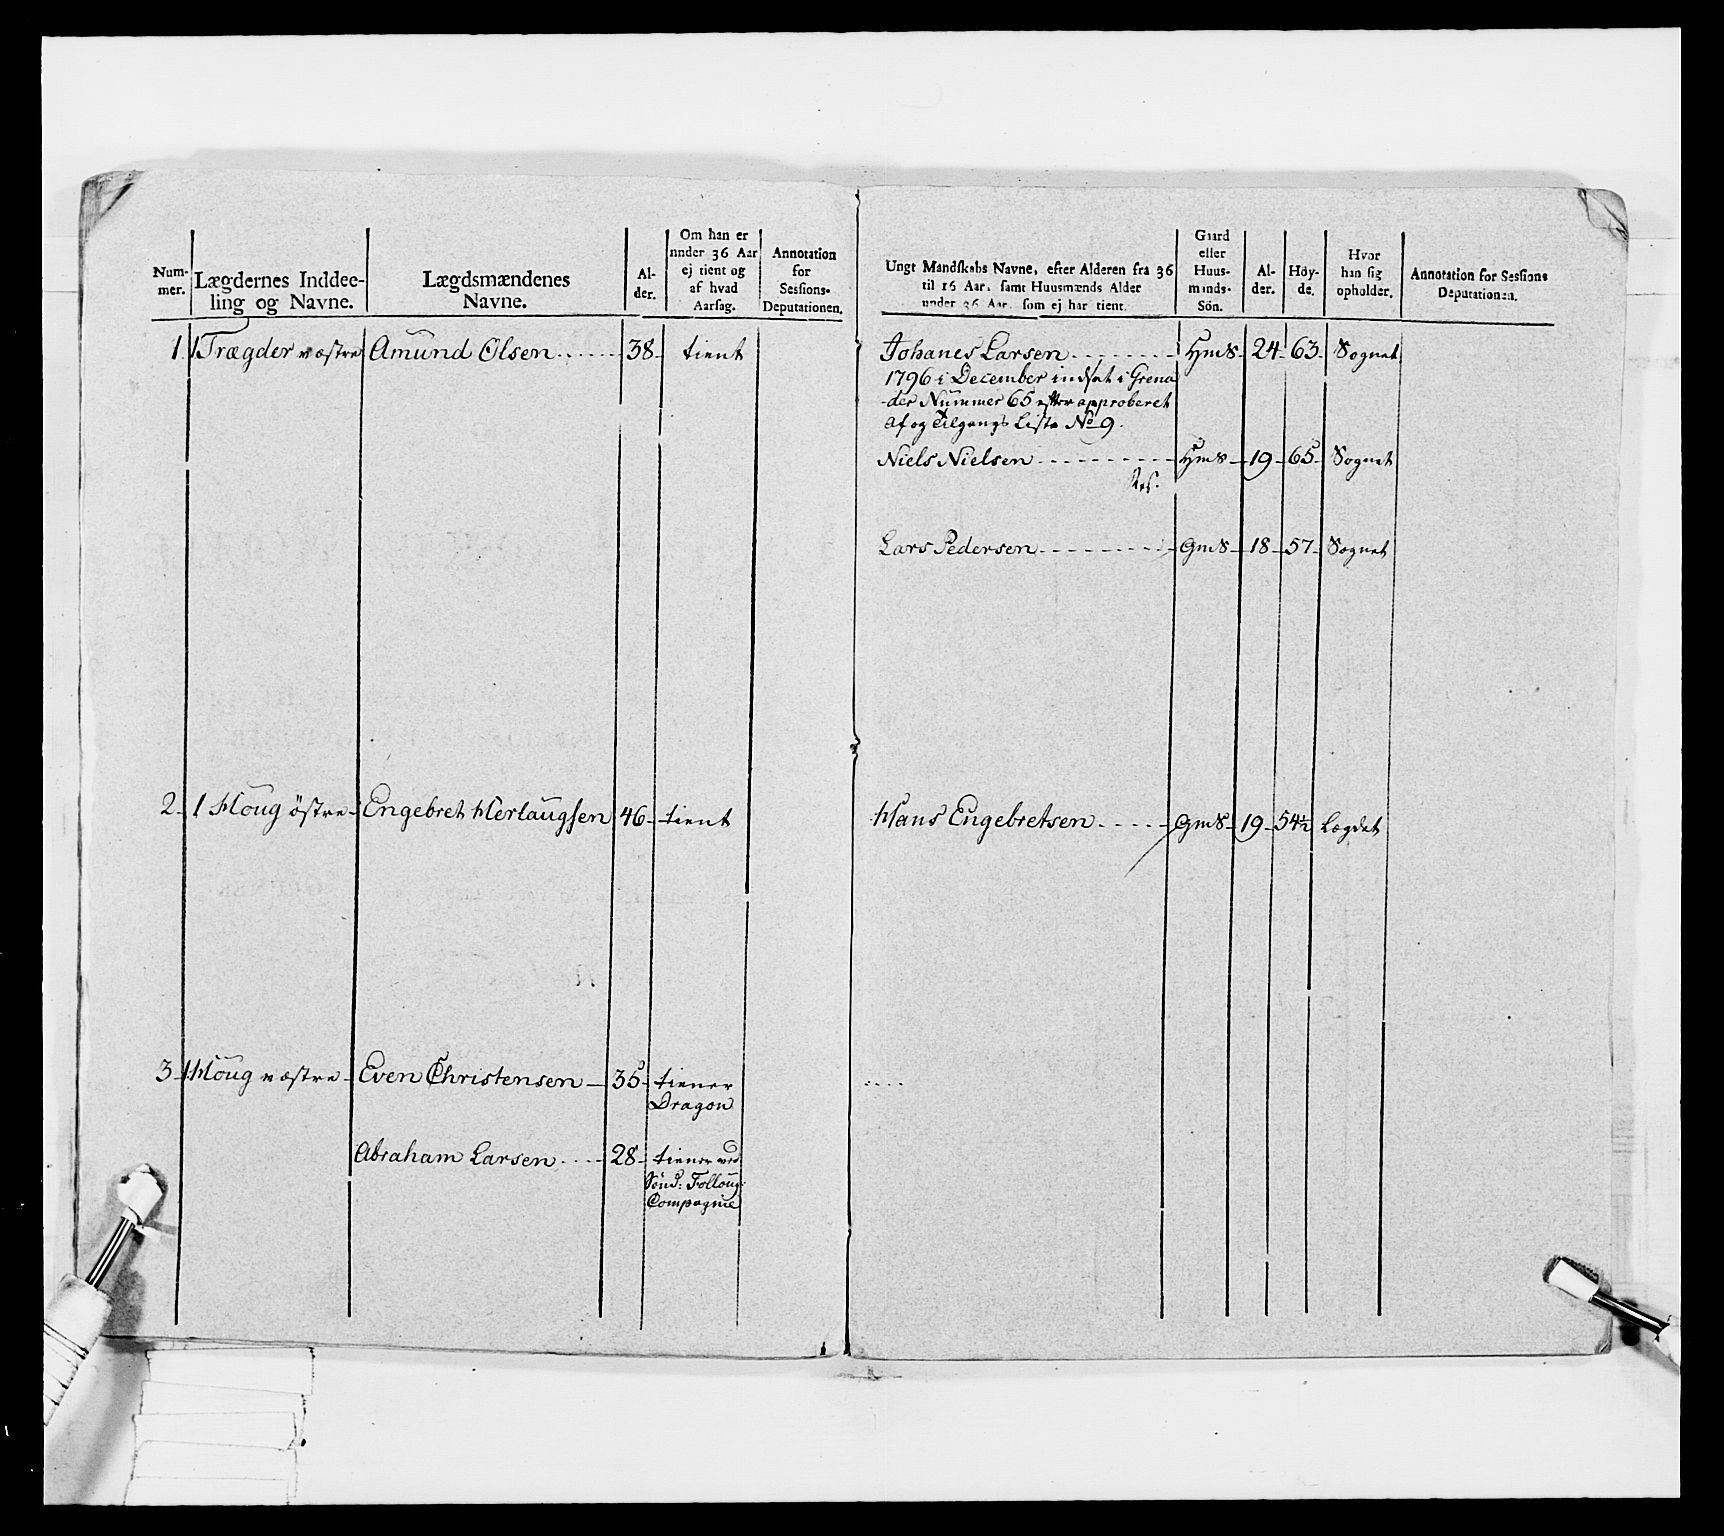 Num-
mer.
Lægdernes Inddee-
ling og Navne.
Lægdsmændenes
Navne.
Al-
der.
Om han er
under 36 Aar
ej tient og
af hvad
Aarsag.
Annotation
for
Sessions-
Deputationen.
1. 1 Trægder væstre Amund Olsen 38 tient
2. 1 Houg östre Engebret Herlaugsen 46 tient
3 1 Houg væstre Even Christensen 35 tiener
Dragon
Abraham Larsen 28 tiener ved
Sönd: Folloug:
Compagnie
Ungt Mandskabs Navne, efter Alderen fra 36
til 16 Aar, samt Huusmænds Alder
under 36 Aar, som ej har tient.
Gaard
eller
Huus-
mands-
Sön.
Al-
der.
Höy-
de.
Hvor
han sig
opholder.
Annotation for Sessions
Deputationen.
Johanes Larsen HmS 24 63 Sognet
1796 i December indsat i Grena
der Nummer 65 efter approberet
af og tilgangs Liste No 9.
Niels Nielsen HmS 19 65 Sognet
Res.
Lars Pedersen GmS 18 57 Sognet
Hans Engebretsen GmS 19 54½ Lægdet